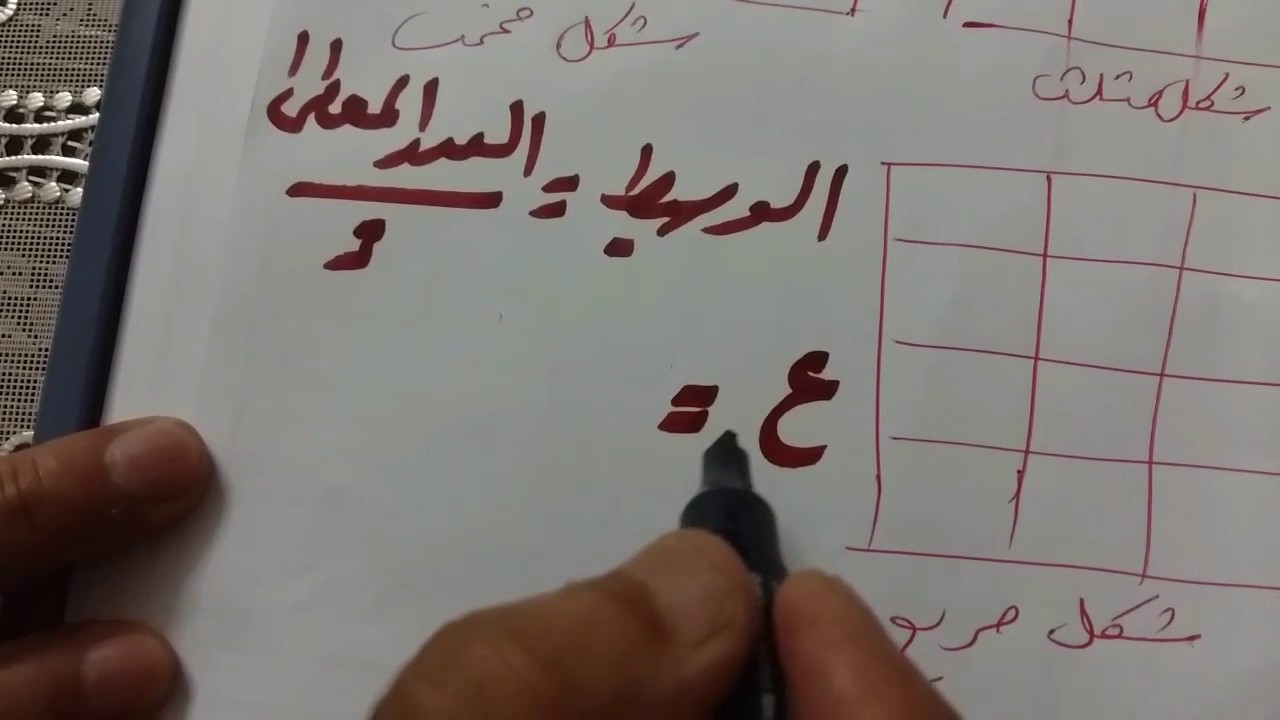 شكل مخمس
شكل مثلث
الوسيط = العدد المعطى
و
ع =
شكل مربع